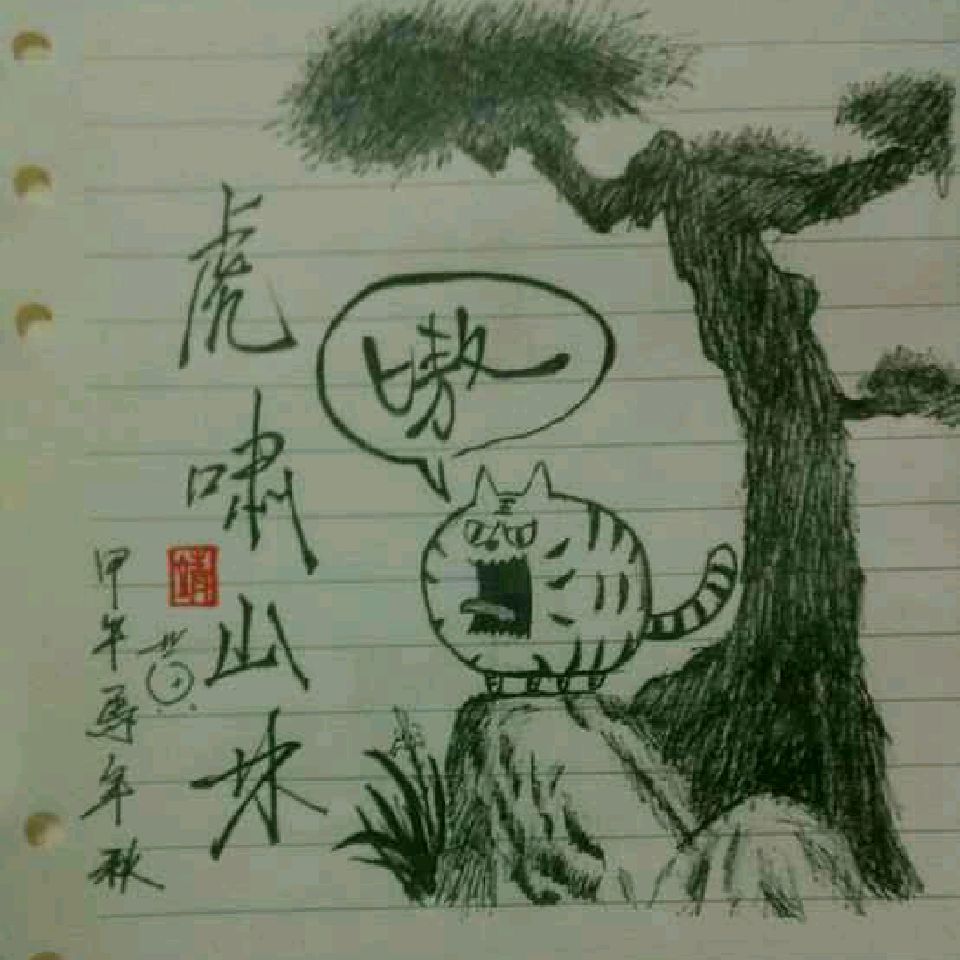 嗷
虎啸山林
甲午馬年秋